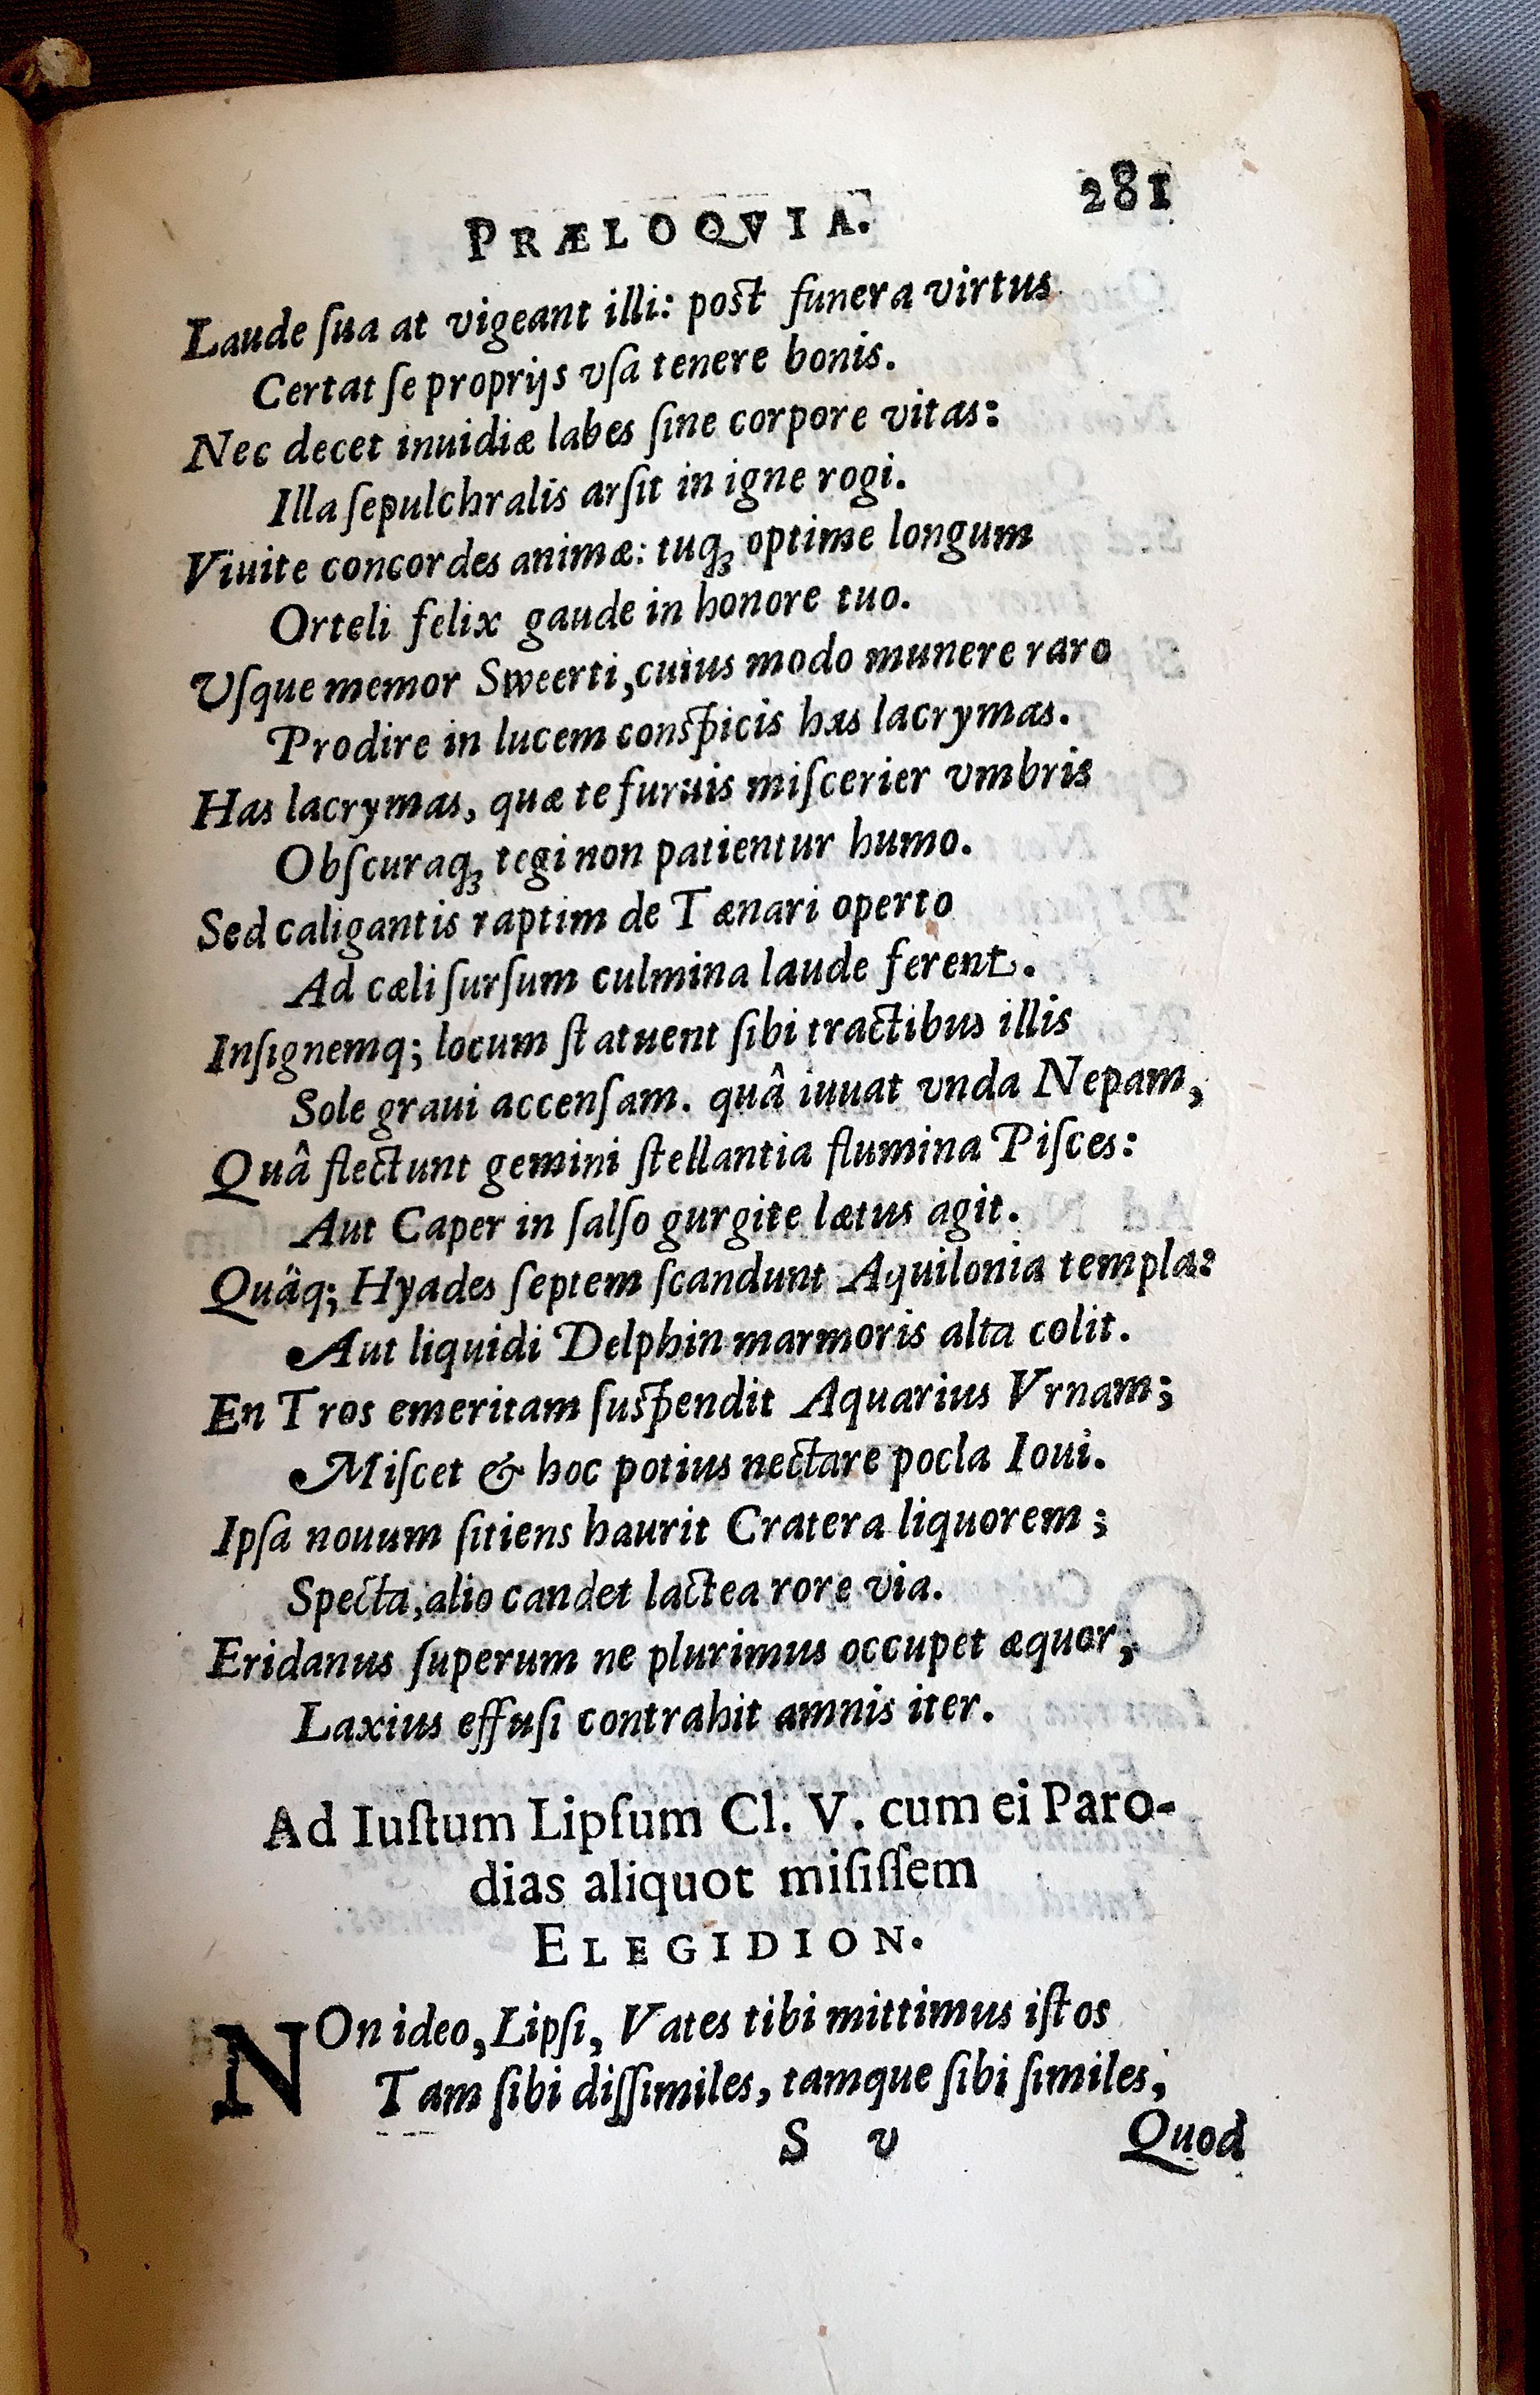 PRÆLOQVIA. 281
Laude ſua at vigeant illi: post funera virtus
Certat ſe proprijs vſa tenere bonis.
Nec decet inuidiæ labes ſine corpore vitas:
Illa ſepulchralis arſit in igne rogi.
Viuite concordes animæ: tuq́₃ optime longum
Orteli felix gaude in honore tuo.
Vſque memor Sweerti, cuius modo munere raro
Prodire in lucem conspicis has lacrymas.
Has lacrymas, quæ te furuis miſcerier vmbris
Obſcuraq́₃ tegi non patientur humo.
Sed caligantis raptim de Tænari operto
Ad cæli ſurſum culmina laude ferent.
Inſignemq; locum ſtatuent ſibi tractibus illis
Sole graui accenſam. quâ iuuat vnda Nepam,
Quâ flectunt gemini ſtellantia flumina Piſces:
Aut Caper in ſalſo gurgite lætus agit.
Quäq; Hyades ſeptem ſcandunt Aquilonia templa:
Aut liquidi Delphin marmoris alta colit.
En Tros emeritam ſuspendit Aquarius Vrnam;
Miſcet & hoc potius nectare pocla Ioui.
Ipſa nouum ſitiens haurit Cratera liquorem;
Specta, alio candet lactea rore via.
Eridanus ſuperum ne plurimus occupet æquor,
Laxius effuſi contrahit amnis iter.
Ad Iuſtum Lipſum Cl. V. cum ei Paro-
dias aliquot miſiſſem
ELEGIDION.
NOn ideo, Lipſi, Vates tibi mittimus iſtos
Tam ſibi diſſimiles, tamque ſibi ſimiles,
S v Quod